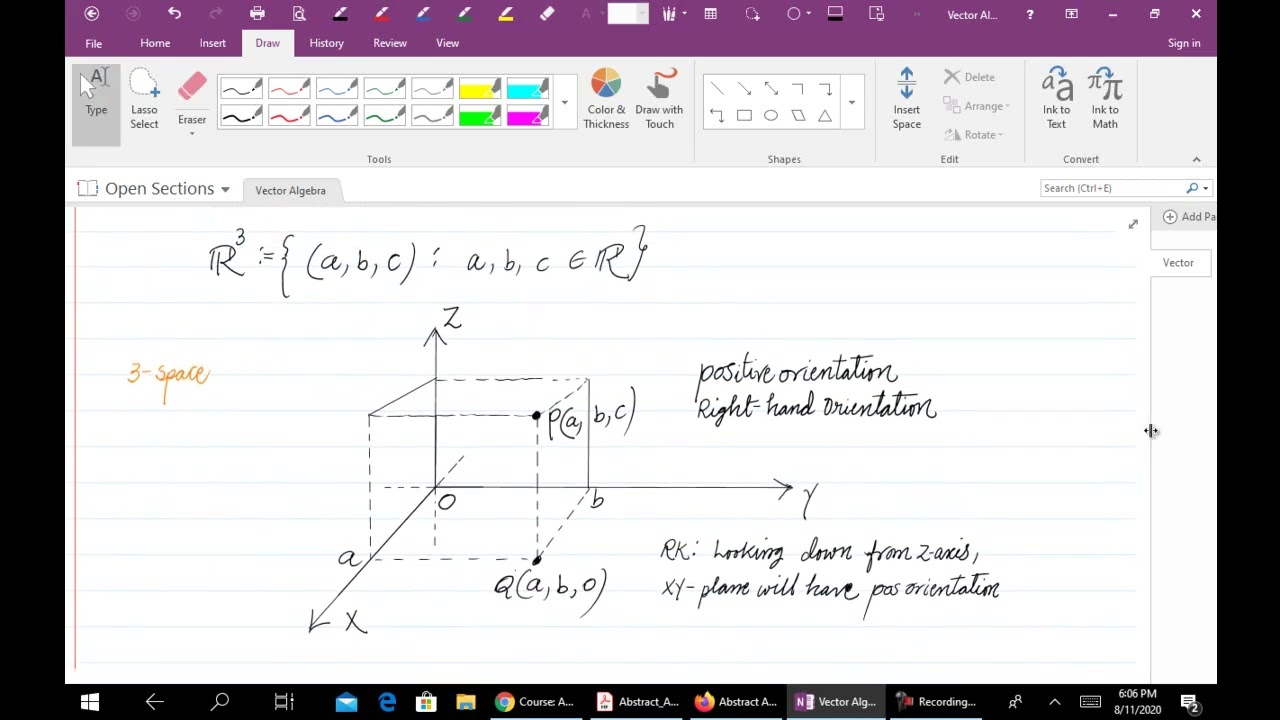 Vector Al...
File
Home
Insert
Draw
History
Review
View
Sign in
Type
Lasso Select
Eraser
Color & Thickness
Draw with Touch
Insert Space
Delete
Arrange
Rotate
Ink to Text
Ink to Math
Tools
Shapes
Edit
Convert
Open Sections
Vector Algebra
Search (Ctrl+E)
Add Pa
Vector
ℝ³ := { (a, b, c) : a, b, c ∈ ℝ }
Z
3-space
positive orientation
Right-hand Orientation
P(a, b, c)
O
b
Y
a
RK: Looking down from z-axis,
XY-plane will have pos orientation
Q(a, b, 0)
X
Course: A...
Abstract_A...
Abstract A...
Vector Alg...
Recording...
6:06 PM
8/11/2020
2